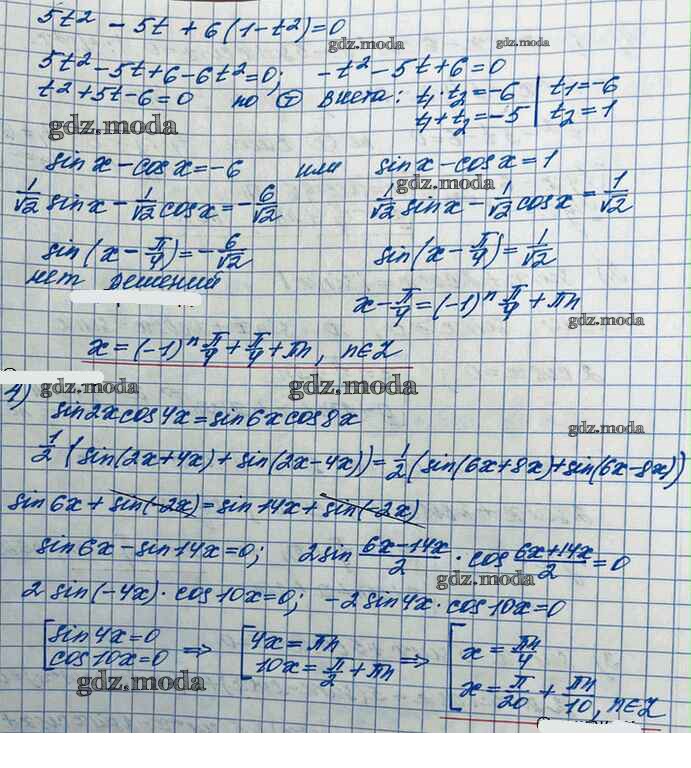 5t² - 5t + 6(1-t²)=0
gdz.moda gdz.moda
5t²-5t+6-6t²=0; -t²-5t+6=0
t²+5t-6=0 по Ⓣ Виета: t₁·t₂=-6 | t₁=-6
t₁+t₂=-5 | t₂=1
gdz.moda gdz.moda
sin x - cos x = -6 или sin x - cos x = 1
gdz.moda
1/√2 sin x - 1/√2 cos x = -6/√2 1/√2 sin x - 1/√2 cos x = 1/√2
sin(x - π/4) = -6/√2 sin(x - π/4) = 1/√2
нет решений
x - π/4 = (-1)ⁿ π/4 + πn
gdz.moda
x = (-1)ⁿ π/4 + π/4 + πn, n∈Z
4) gdz.moda gdz.moda
sin2x cos4x = sin6x cos8x
gdz.moda
1/2 (sin(2x+4x) + sin(2x-4x)) = 1/2 (sin(6x+8x) + sin(6x-8x))
sin6x + sin(-2x) = sin14x + sin(-2x)
sin6x - sin14x = 0; 2sin (6x-14x)/2 · cos (6x+14x)/2 = 0
gdz.moda
2 sin(-4x) · cos10x = 0; -2 sin4x · cos10x = 0
[ sin4x = 0 ⇒ [ 4x = πn ⇒ [ x = πn/4
cos10x = 0 10x = π/2 + πn x = π/20 + πn/10, n∈Z
gdz.moda gdz.moda